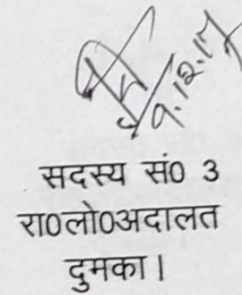 9.12.17
सदस्य सं0 3
रा0लो0अदालत
दुमका।